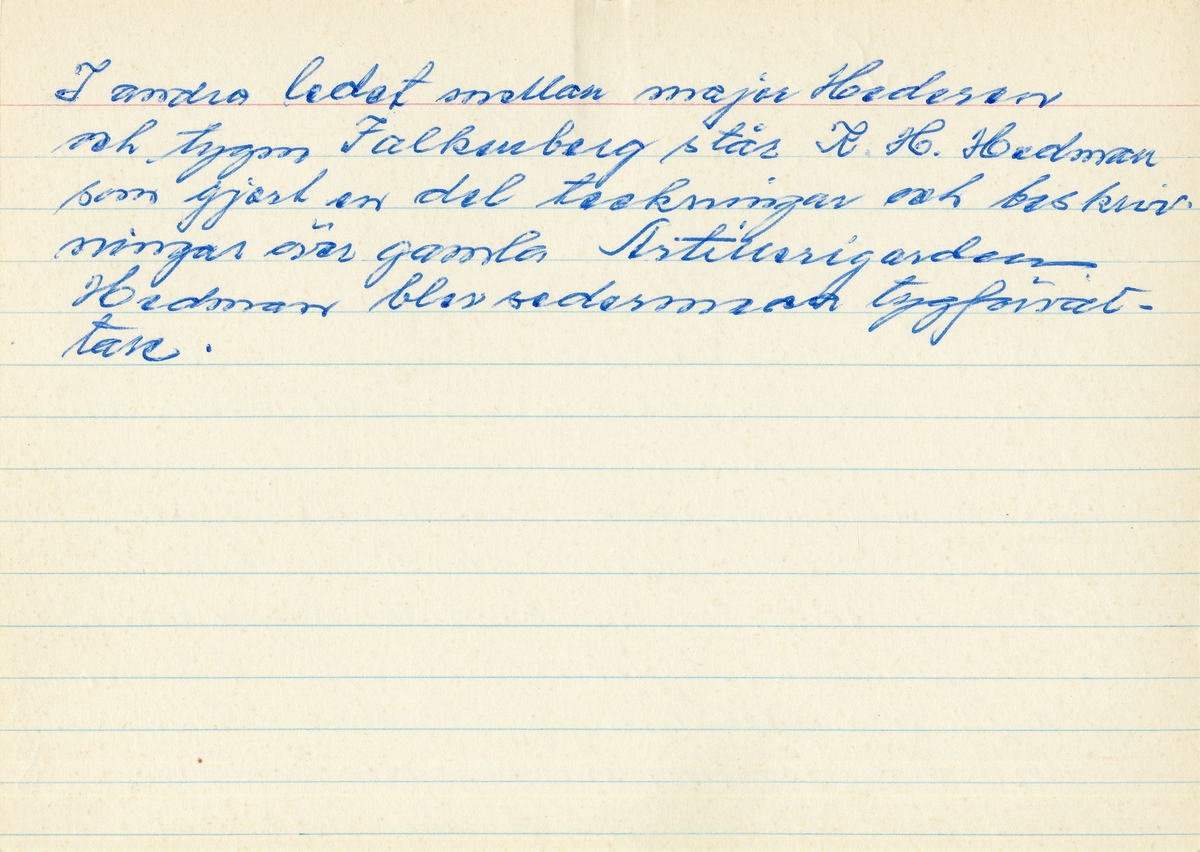 I andra ledet mellan major Hederen
och tygm Falkenberg står K. H. Hedman
som gjort en del teckningar och beskriv-
ningar över gamla Artillerigården
Hedman blev sedermera tygförval-
tare.